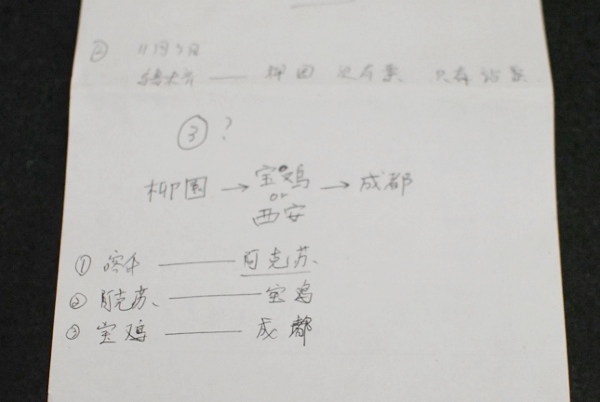 ② 11月3日
乌鲁木齐 —— 柳园 没有票 只有站票
③ ?
柳园 → 宝鸡 → 成都
or
西安
① 喀什 —— 阿克苏、
② 阿克苏、 —— 宝鸡
③ 宝鸡 —— 成都